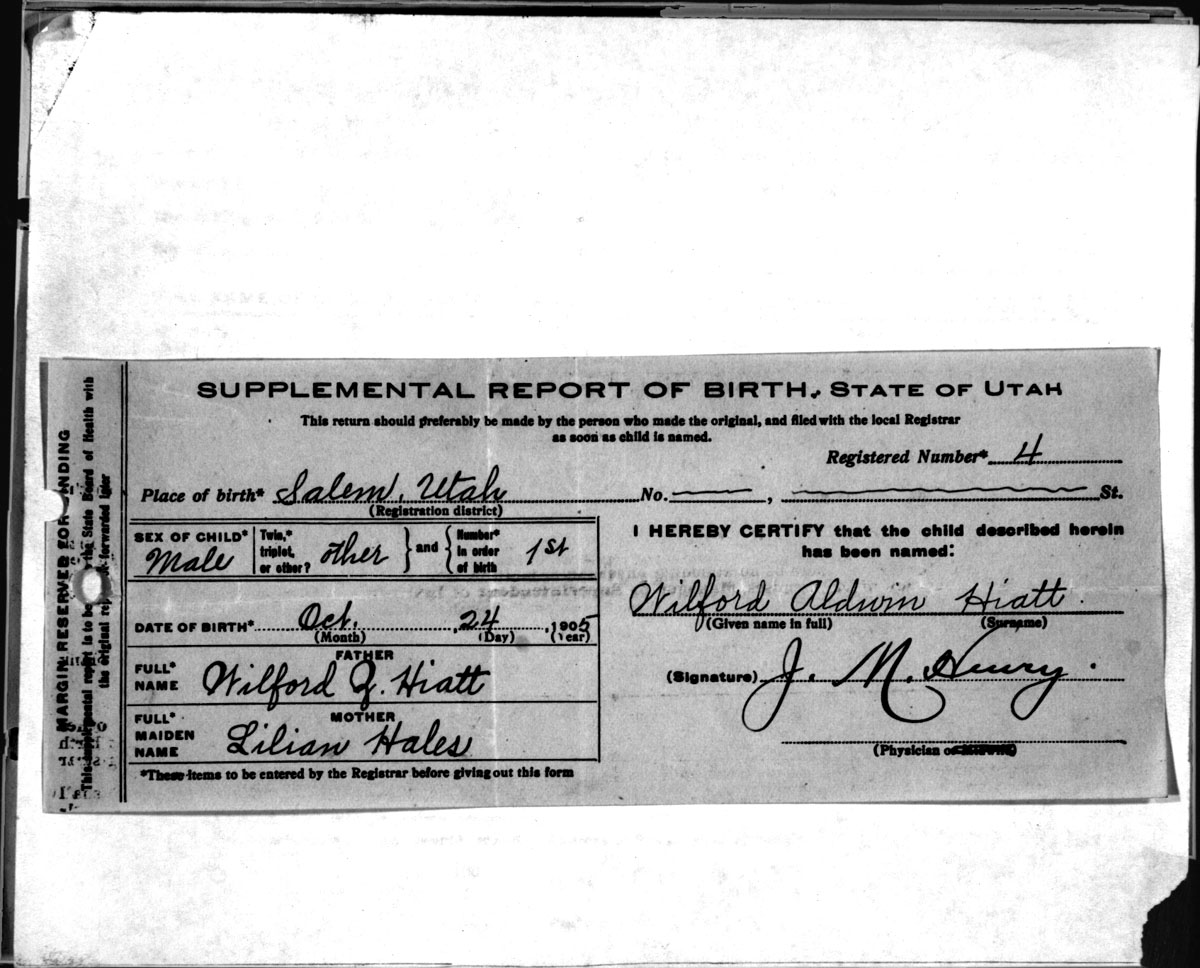 SUPPLEMENTAL REPORT OF BIRTH, STATE OF UTAH
This return should preferably be made by the person who made the original, and filed with the local Registrar
as soon as child is named.
Registered Number* 4
Place of birth* Salem, Utah No. , St.
(Registration district)
SEX OF CHILD* Male
Twin,* triplet, or other? other } and { Number* in order of birth 1st
DATE OF BIRTH* Oct. , 24 , 1905
(Month) (Day) (Year)
FATHER
FULL* NAME Wilford Hiatt
MOTHER
FULL* MAIDEN NAME Lilian Hales
*These items to be entered by the Registrar before giving out this form
I HEREBY CERTIFY that the child described herein
has been named:
Wilford Aldwin Hiatt.
(Given name in full) (Surname)
(Signature) J. M. Henry.
(Physician or
MARGIN RESERVED FOR BINDING
This supplemental report is to be the State Board of Health with
the original forwarded later